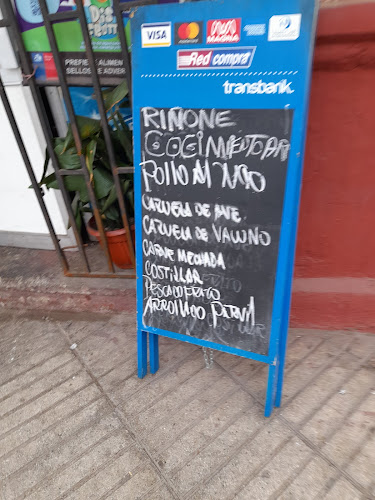 VISA
MAGNA
Red compra
transbank.
PREFIE ALIMEN
SELLOS ADVER
RIÑONE
COCIMIENTO AR
POLLO AL JUGO
CAZUELA DE AVE
CAZUELA DE VACUNO
CARNE MECHADA
COSTILLAR
PESCADO FRITO
ARROLLADO PERNIL